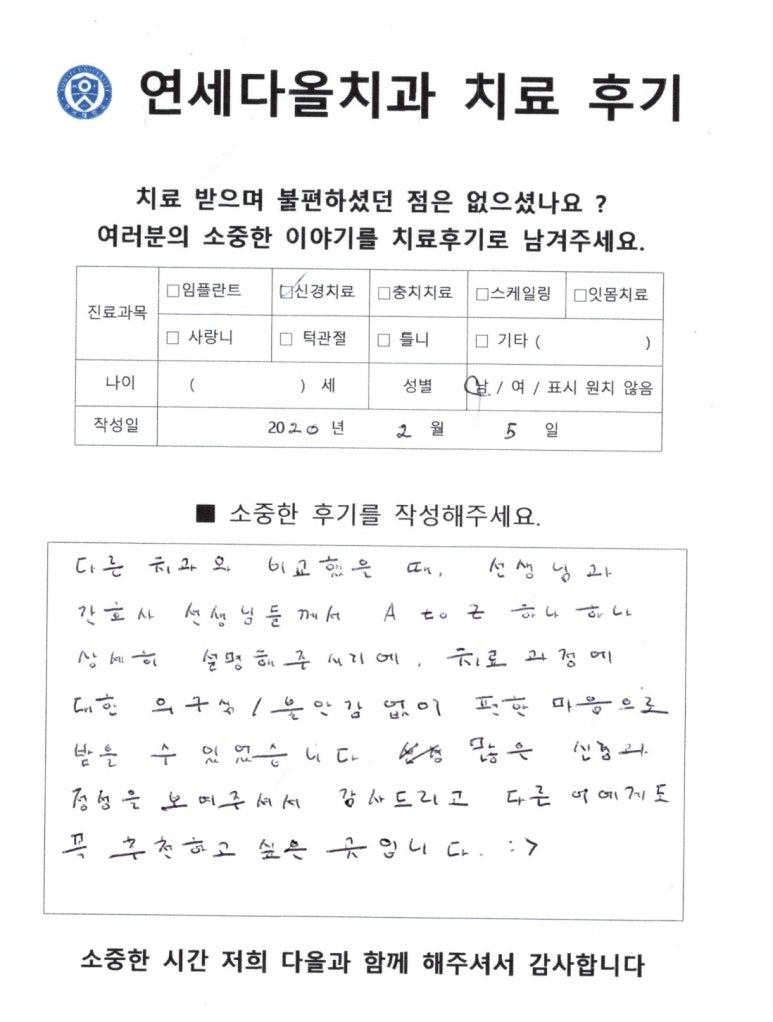 연세다올치과 치료 후기
치료 받으며 불편하셨던 점은 없으셨나요 ?
여러분의 소중한 이야기를 치료후기로 남겨주세요.
진료과목 □임플란트 ☑신경치료 □충치치료 □스케일링 □잇몸치료
□ 사랑니 □ 턱관절 □ 틀니 □ 기타 ( )
나이 ( ) 세 성별 남 / 여 / 표시 원치 않음
작성일 2020 년 2 월 5 일
■ 소중한 후기를 작성해주세요.
다른 치과와 비교했을 때, 선생님과
간호사 선생님들께서 A to Z 하나 하나
상세히 설명해주시기에, 치료 과정에
대한 의구심/불안감 없이 편한 마음으로
받을 수 있었습니다. 많은 신경과
정성을 보여주셔서 감사드리고 다른 이에게도
꼭 추천하고 싶은 곳입니다. :>
소중한 시간 저희 다올과 함께 해주셔서 감사합니다